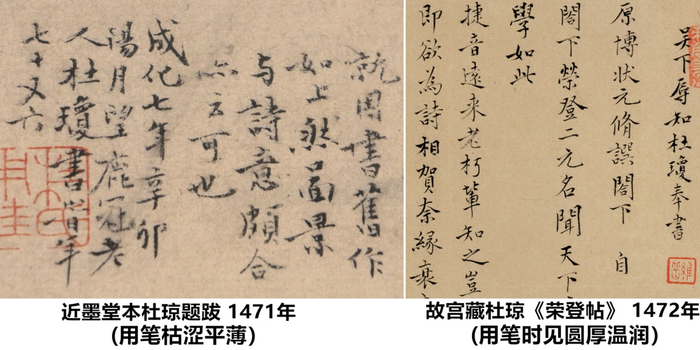 就圖書舊作
如上然景
与詩意頗合
亦云可也
成化七年辛卯
陽月望鹿冠老
人杜瓊書昔年
七十又六
近墨堂本杜琼题跋 1471年
(用笔枯涩平薄)
吴下辱知杜瓊奉書
原博狀元脩譔閣下 自
閣下榮登二元名聞天下
學如此
捷音遠来老朽輩知之豈
即欲為詩相賀奈緣衰
故宫藏杜琼《荣登帖》 1472年
(用笔时见圆厚温润)